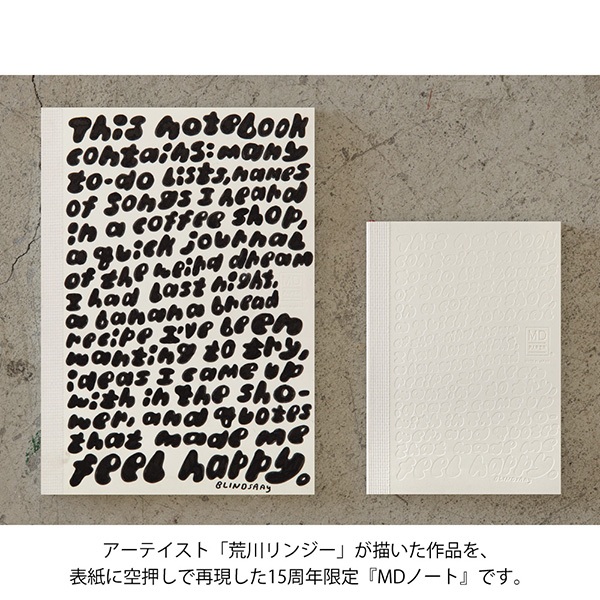 This notebook
contains: many
to-do lists, names
of songs I heard
in a coffee shop,
a quick journal
of the weird dream
I had last night,
a banana bread
recipe I've been
wanting to try,
ideas I came up
with in the sho-
wer, and quotes
that made me
feel happy.
BLINDSAAY
MD
feel happy.
アーテイスト「荒川リンジー」が描いた作品を、
表紙に空押しで再現した15周年限定『MDノート』です。